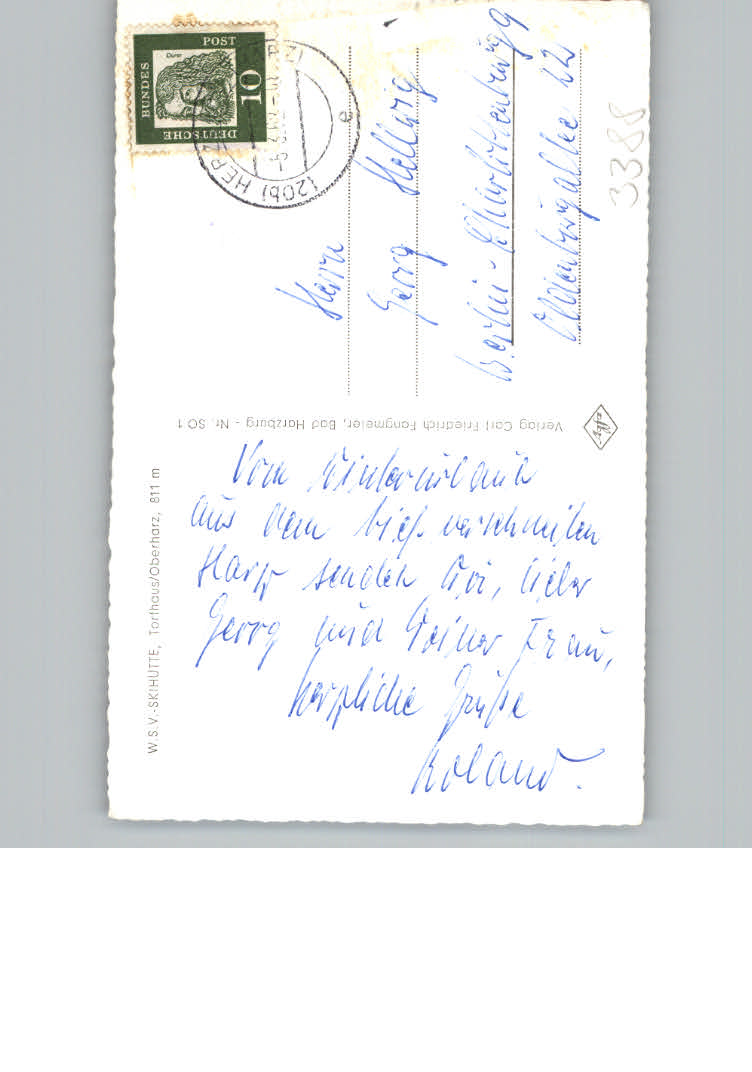 W.S.V.-SKIHÜTTE, Torfhaus/Oberharz, 811 m
Vom Winterurlaub
aus dem tief verschneiten
Harz senden wir, lieber
Georg und Deiner Frau,
herzliche Grüße
Roland.
Verlag Carl Friedrich Fangmeier, Bad Harzburg - Nr. SO 1
Agfa
DEUTSCHE
BUNDES
POST
10
Dürer
(20b) HERZ
HARZ)
a
Herrn
Georg Hellwig
Berlin-Charlottenburg 9
Oldenburgallee 22
3388